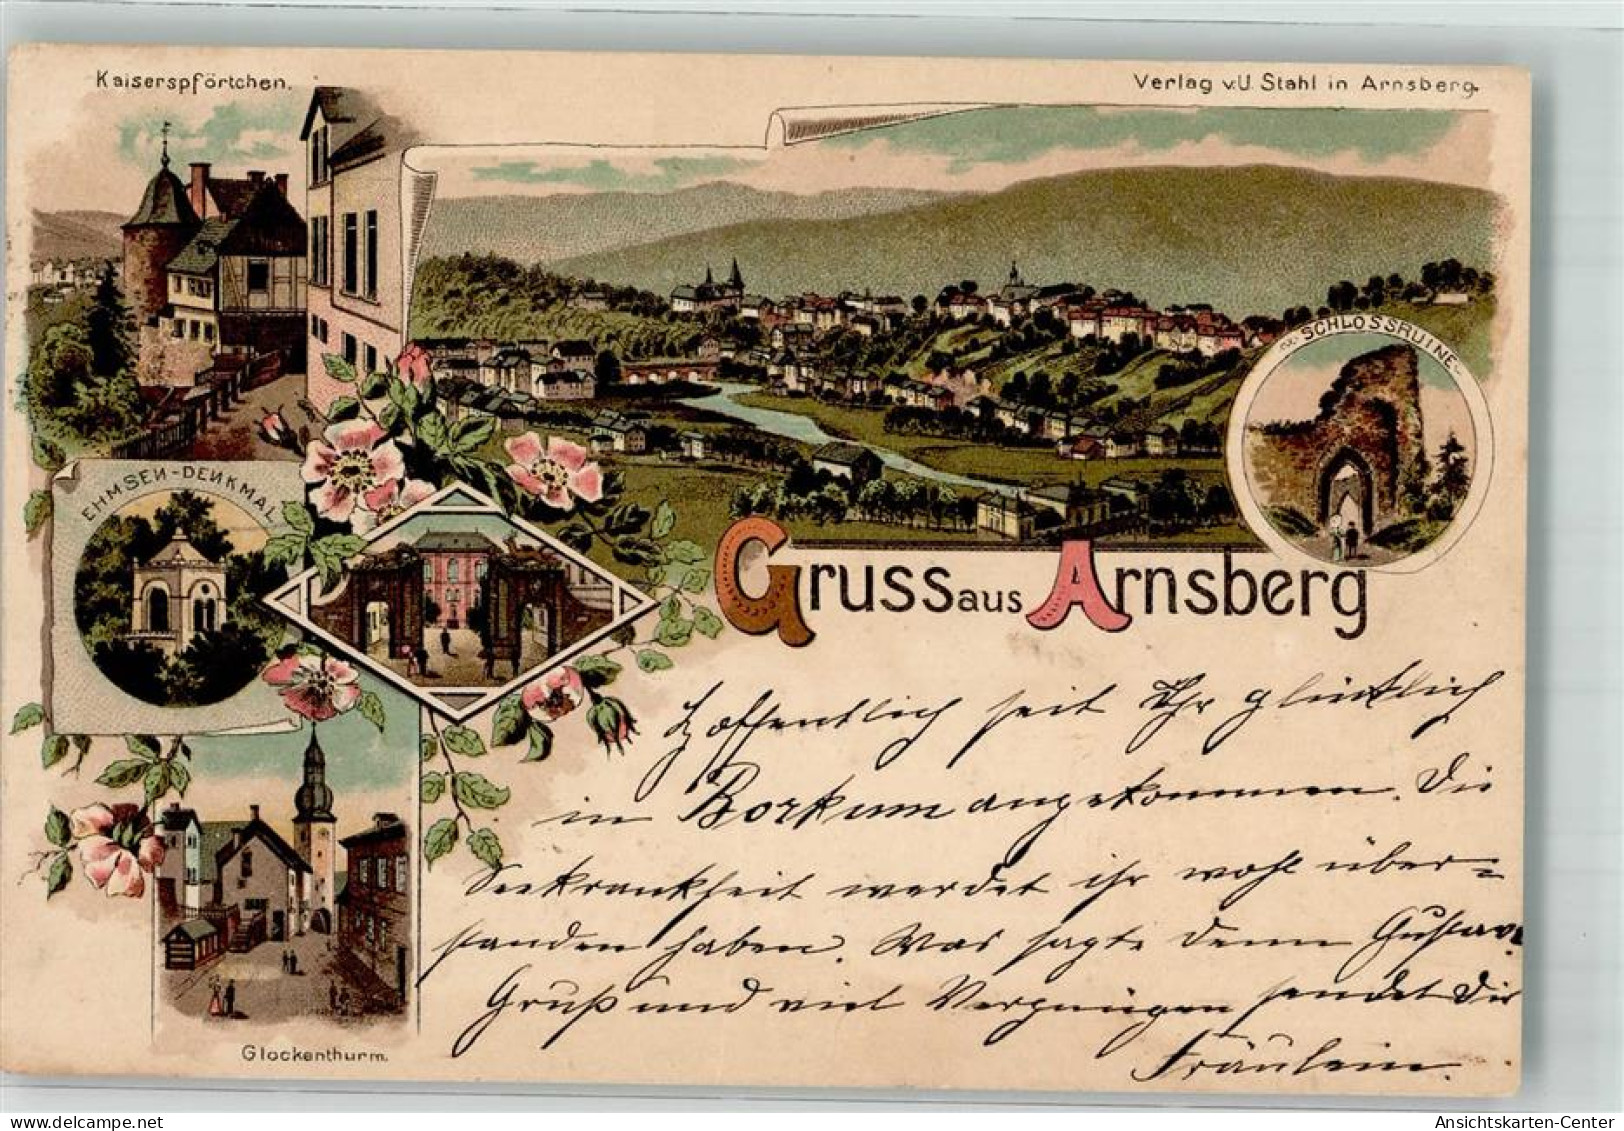 Kaiserspförtchen.
Verlag v. U. Stahl in Arnsberg.
SCHLOSSRUINE
EHMSEN-DENKMAL
Gruss aus Arnsberg
Hoffentlich seit Ihr glücklich
in Borkum angekommen. Die
Seekrankheit werdet ihr wohl über=
standen haben. Was sagte denn Gustav.
Gruß und viel Vergnügen sendet Dir
Fräulein.
Glockenthurm.
Ansichtskarten-Center